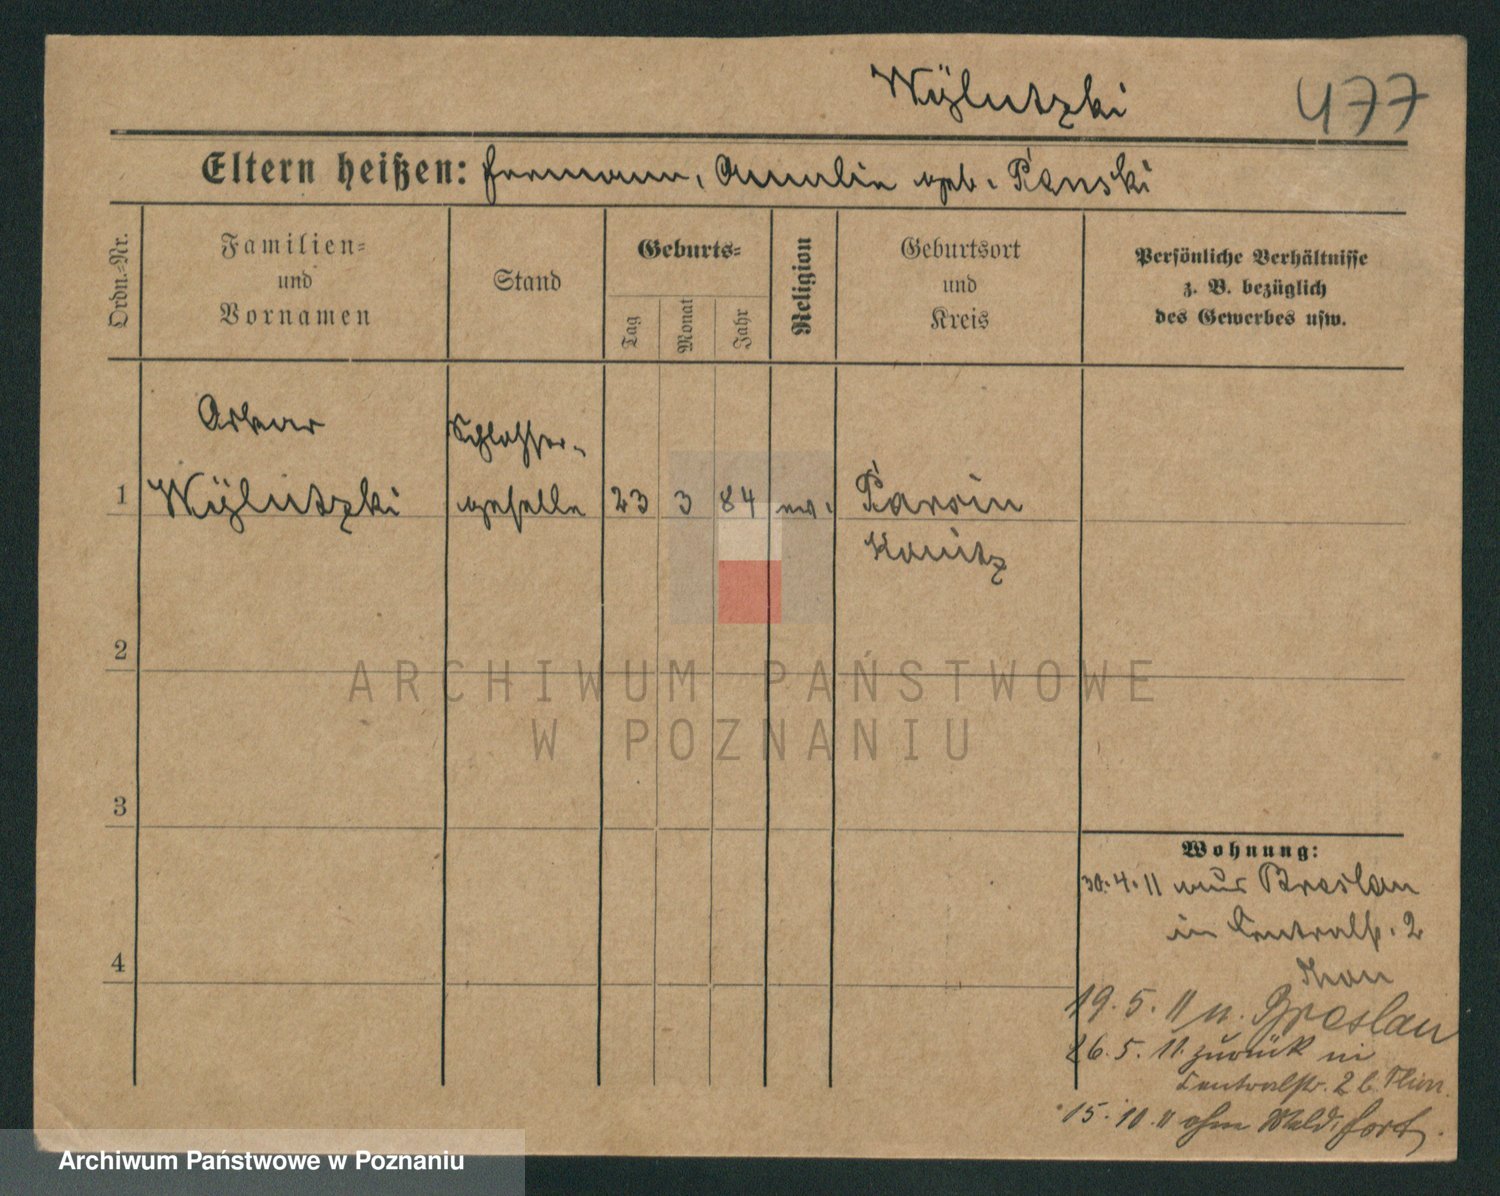 Wÿlutzki 477
Eltern heißen: Hermann, Amalie geb. Panski
Ordn.-Nr.
Familien-
und
Vornamen
Stand
Geburts-
Tag
Monat
Jahr
Religion
Geburtsort
und
Kreis
Persönliche Verhältnisse
z. B. bezüglich
des Gewerbes usw.
Oskar
Schlosser-
1 Wÿlutzki geselle 23 3 84 ev. Parsin
Konitz
2
3
4
Wohnung:
30.4.11 aus Breslau
in Centralstr. 2
19.5.11 n. Breslau
26.5.11 zurück in
Centralstr. 2 b.
15.10.11 ohne Meld. fort.
ARCHIWUM PAŃSTWOWE
W POZNANIU
Archiwum Państwowe w Poznaniu